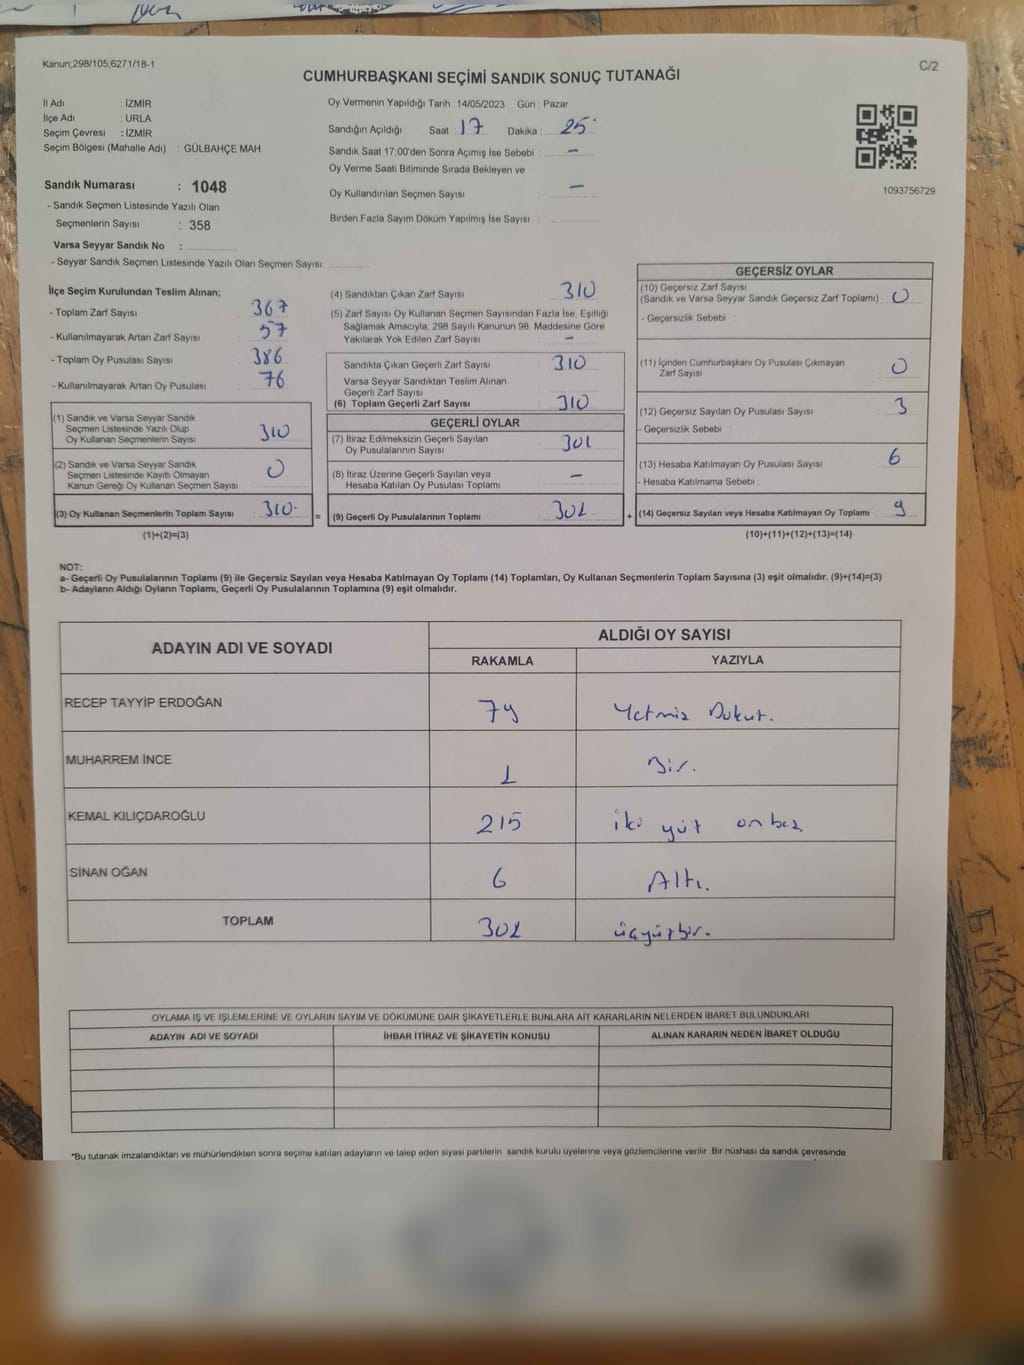 Kanun;298/105,6271/18-1
C/2
CUMHURBAŞKANI SEÇİMİ SANDIK SONUÇ TUTANAĞI
İl Adı : İZMİR
İlçe Adı : URLA
Seçim Çevresi : İZMİR
Seçim Bölgesi (Mahalle Adı) : GÜLBAHÇE MAH.
Sandık Numarası : 1048
- Sandık Seçmen Listesinde Yazılı Olan
Seçmenlerin Sayısı : 358
Varsa Seyyar Sandık No :
- Seyyar Sandık Seçmen Listesinde Yazılı Olan Seçmen Sayısı:
Oy Vermenin Yapıldığı Tarih : 14/05/2023 Gün : Pazar
Sandığın Açıldığı Saat : 17 Dakika : 25
Sandık Saat 17:00'den Sonra Açımış İse Sebebi : -
Oy Verme Saati Bitiminde Sırada Bekleyen ve
Oy Kullandırılan Seçmen Sayısı : -
Birden Fazla Sayım Döküm Yapılmış İse Sayısı :
1093756729
İlçe Seçim Kurulundan Teslim Alınan;
- Toplam Zarf Sayısı 367
- Kullanılmayarak Artan Zarf Sayısı : 57
- Toplam Oy Pusulası Sayısı : 386
- Kullanılmayarak Artan Oy Pusulası : 76
(1) Sandık ve Varsa Seyyar Sandık
Seçmen Listesinde Yazılı Olup
Oy Kullanan Seçmenlerin Sayısı : 310
(2) Sandık ve Varsa Seyyar Sandık
Seçmen Listesinde Kayıtlı Olmayan
Kanun Gereği Oy Kullanan Seçmen Sayısı : 0
(3) Oy Kullanan Seçmenlerin Toplam Sayısı : 310
(1)+(2)=(3)
(4) Sandıktan Çıkan Zarf Sayısı : 310
(5) Zarf Sayısı Oy Kullanan Seçmen Sayısından Fazla İse, Eşitliği
Sağlamak Amacıyla, 298 Sayılı Kanunun 98. Maddesine Göre
Yakılarak Yok Edilen Zarf Sayısı : -
Sandıkta Çıkan Geçerli Zarf Sayısı : 310
Varsa Seyyar Sandıktan Teslim Alınan
Geçerli Zarf Sayısı :
(6) Toplam Geçerli Zarf Sayısı : 310
GEÇERLİ OYLAR
(7) İtiraz Edilmeksizin Geçerli Sayılan
Oy Pusulalarının Sayısı : 301
(8) İtiraz Üzerine Geçerli Sayılan veya
Hesaba Katılan Oy Pusulası Toplamı : -
= (9) Geçerli Oy Pusulalarının Toplamı : 301
GEÇERSİZ OYLAR
(10) Geçersiz Zarf Sayısı
(Sandık ve Varsa Seyyar Sandık Geçersiz Zarf Toplamı) : 0
- Geçersizlik Sebebi :
(11) İçinden Cumhurbaşkanı Oy Pusulası Çıkmayan
Zarf Sayısı : 0
(12) Geçersiz Sayılan Oy Pusulası Sayısı : 3
- Geçersizlik Sebebi :
(13) Hesaba Katılmayan Oy Pusulası Sayısı : 6
- Hesaba Katılmama Sebebi :
+ (14) Geçersiz Sayılan veya Hesaba Katılmayan Oy Toplamı : 9
(10)+(11)+(12)+(13)=(14)
NOT:
a- Geçerli Oy Pusulalarının Toplamı (9) ile Geçersiz Sayılan veya Hesaba Katılmayan Oy Toplamı (14) Toplamları, Oy Kullanan Seçmenlerin Toplam Sayısına (3) eşit olmalıdır. (9)+(14)=(3)
b- Adayların Aldığı Oyların Toplamı, Geçerli Oy Pusulalarının Toplamına (9) eşit olmalıdır.
ADAYIN ADI VE SOYADI ALDIĞI OY SAYISI
RAKAMLA YAZIYLA
RECEP TAYYİP ERDOĞAN 79 Yetmiş Dokuz.
MUHARREM İNCE 1 Bir.
KEMAL KILIÇDAROĞLU 215 iki yüz onbeş
SİNAN OĞAN 6 Altı.
TOPLAM 301 üçyüzbir.
OYLAMA İŞ VE İŞLEMLERİNE VE OYLARIN SAYIM VE DÖKÜMÜNE DAİR ŞİKAYETLERLE BUNLARA AİT KARARLARIN NELERDEN İBARET BULUNDUKLARI
ADAYIN ADI VE SOYADI İHBAR İTİRAZ VE ŞİKAYETİN KONUSU ALINAN KARARIN NEDEN İBARET OLDUĞU
*Bu tutanak imzalandıktan ve mühürlendikten sonra seçime katılan adayların ve talep eden siyasi partilerin sandık kurulu üyelerine veya gözlemcilerine verilir. Bir nüshası da sandık çevresinde